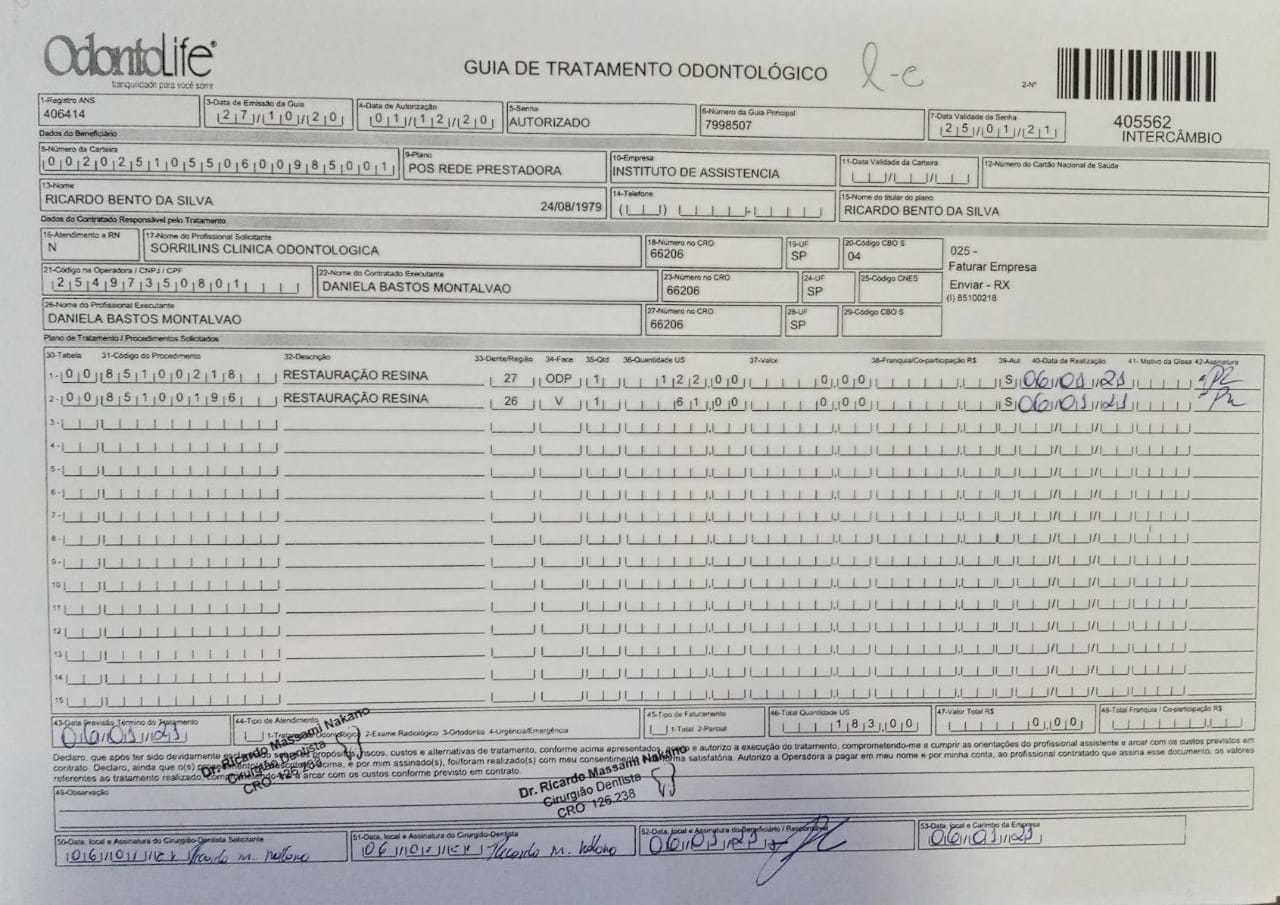 OdontoLife®
tranquilidade para você sorrir
GUIA DE TRATAMENTO ODONTOLÓGICO
2-Nº
405562
INTERCÂMBIO
1-Registro ANS
406414
3-Data de Emissão da Guia
27/10/20
4-Data de Autorização
01/12/20
5-Senha
AUTORIZADO
6-Número da Guia Principal
7998507
7-Data Validade da Senha
25/01/21
Dados do Beneficiário
8-Número da Carteira
00202510550600985001
9-Plano
POS REDE PRESTADORA
10-Empresa
INSTITUTO DE ASSISTENCIA
11-Data Validade da Carteira
12-Número do Cartão Nacional de Saúde
13-Nome
RICARDO BENTO DA SILVA 24/08/1979
14-Telefone
15-Nome do titular do plano
RICARDO BENTO DA SILVA
Dados do Contratado Responsável pelo Tratamento
16-Atendimento a RN
N
17-Nome do Profissional Solicitante
SORRILINS CLINICA ODONTOLOGICA
18-Número no CRO
66206
19-UF
SP
20-Código CBO S
04
025 -
Faturar Empresa
Enviar - RX
(I) 85100218
21-Código na Operadora / CNPJ / CPF
25497350801
22-Nome do Contratado Executante
DANIELA BASTOS MONTALVAO
23-Número no CRO
66206
24-UF
SP
25-Código CNES
26-Nome do Profissional Executante
DANIELA BASTOS MONTALVAO
27-Número no CRO
66206
28-UF
SP
29-Código CBO S
Plano de Tratamento / Procedimentos Solicitados
30-Tabela 31-Código do Procedimento 32-Descrição 33-Dente/Região 34-Face 35-Qtd 36-Quantidade US 37-Valor 38-Franquia/Co-participação R$ 39-Aut 40-Data de Realização 41- Motivo da Glosa 42-Assinatura
1- 00 85100218 RESTAURAÇÃO RESINA 27 ODP 1 122,00 0,00 S 06/01/21
2- 00 85100196 RESTAURAÇÃO RESINA 26 V 1 61,00 0,00 S 06/01/21
3-
4-
5-
6-
7-
8-
9-
10
11
12
13
14
15
43-Data Previsão Término do Tratamento
06/01/21
44-Tipo de Atendimento
1-Tratamento Odontológico 2-Exame Radiológico 3-Ortodontia 4-Urgência/Emergência
45-Tipo de Faturamento
1-Total 2-Parcial
46-Total Quantidade US
183,00
47-Valor Total R$
0,00
48-Total Franquia / Co-participação R$
Declaro, que após ter sido devidamente esclarecido sobre os propósitos, riscos, custos e alternativas de tratamento, conforme acima apresentados, e autorizo a execução do tratamento, comprometendo-me a cumprir as orientações do profissional assistente e arcar com os custos previstos em
contrato. Declaro, ainda que o(s) procedimento(s) acima, e por mim assinado(s), foi/foram realizado(s) com meu consentimento forma satisfatória. Autorizo a Operadora a pagar em meu nome e por minha conta, ao profissional contratado que assina esse documento, os valores
referentes ao tratamento realizado, a arcar com os custos conforme previsto em contrato.
Dr. Ricardo Massami Nakano
Cirurgião Dentista
CRO 126.238
Dr. Ricardo Massami Nakano
Cirurgião Dentista
CRO 126.238
49-Observação
50-Data, local e Assinatura do Cirurgião-Dentista Solicitante
06/01/21 Ricardo M. Nakano
51-Data, local e Assinatura do Cirurgião-Dentista
06/01/21 Ricardo M. Nakano
52-Data, local e Assinatura do Beneficiário / Responsável
06/01/21
53-Data, local e Carimbo da Empresa
06/01/21